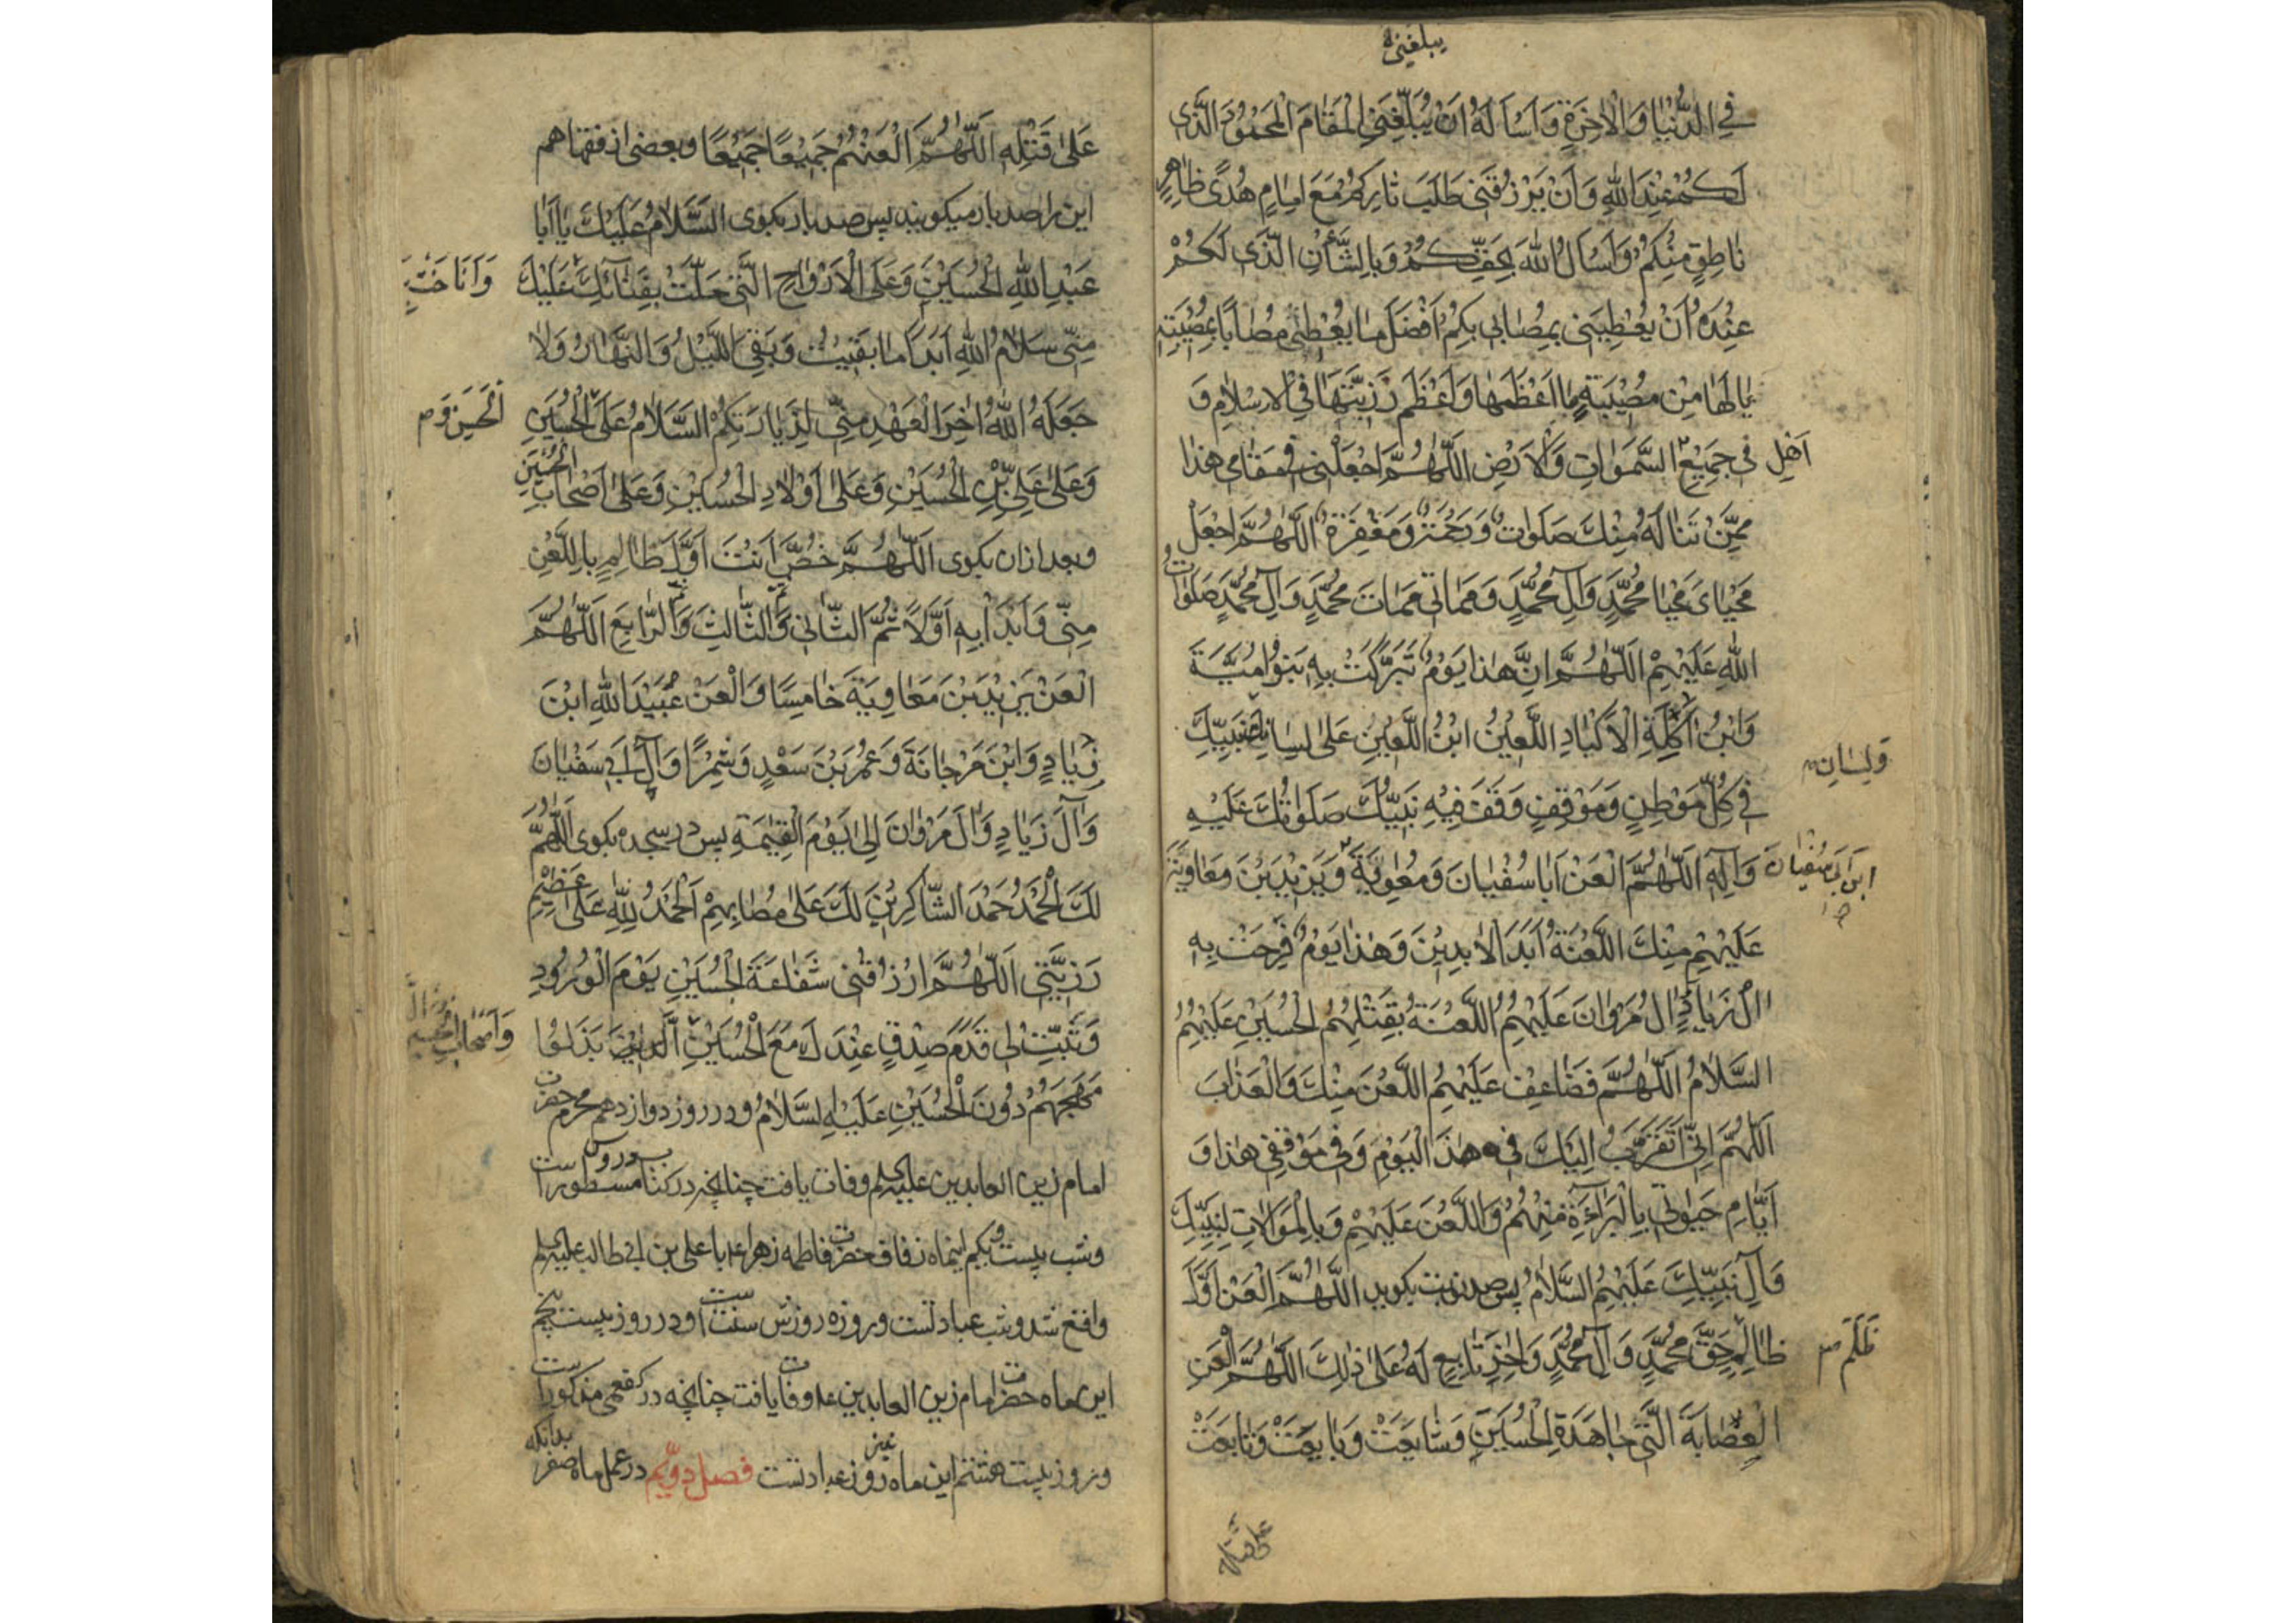 يبلغنى
فِي الدُّنْيَا وَالْاٰخِرَةِ وَاَسْاَلُهُ اَنْ يُبَلِّغَنِي الْمَقَامَ الْمَحْمُوْدَ الَّذِى
لَكُمْ عِنْدَ اللهِ وَاَنْ يَرْزُقَنِى طَلَبَ ثَارِكُمْ مَعَ اِمَامٍ هُدًى ظَاهِرٍ
نَاطِقٍ مِنْكُمْ وَاَسْاَلُ اللهَ بِحَقِّكُمْ وَبِالشَّأْنِ الَّذِى لَكُمْ
عِنْدَهُ اَنْ يُعْطِيَنِى بِمُصَابِى بِكُمْ اَفْضَلَ مَا يُعْطِى مُصَابًا بِمُصِيْبَتِهِ
يَالَهَا مِنْ مُصِيْبَةٍ مَا اَعْظَمَهَا وَاَعْظَمَ رَزِيَّتَهَا فِي الْاِسْلَامِ وَ
اَهْلِ
فِى جَمِيْعِ السَّمٰوَاتِ وَالْاَرْضِ اَللّٰهُمَّ اجْعَلْنِى فِى مَقَامِى هٰذَا
مِمَّنْ تَنَالُهُ مِنْكَ صَلَوَاتٌ وَرَحْمَةٌ وَمَغْفِرَةٌ اَللّٰهُمَّ اجْعَلْ
مَحْيَاىَ مَحْيَا مُحَمَّدٍ وَآلِ مُحَمَّدٍ وَمَمَاتِى مَمَاتَ مُحَمَّدٍ وَآلِ مُحَمَّدٍ صَلَوَاتُ
اللهِ عَلَيْهِمْ اَللّٰهُمَّ اِنَّ هٰذَا يَوْمٌ تَبَرَّكَتْ بِهِ بَنُو اُمَيَّةَ
وَابْنُ اٰكِلَةِ الْاَكْبَادِ اللَّعِيْنُ ابْنُ اللَّعِيْنِ عَلٰى لِسَانِ نَبِيِّكَ
وَلِسَانِ
فِى كُلِّ مَوْطِنٍ وَمَوْقِفٍ وَقَفَ فِيْهِ نَبِيُّكَ صَلَوَاتُكَ عَلَيْهِ
وَآلِهِ اَللّٰهُمَّ الْعَنْ اَبَا سُفْيَانَ وَمُعٰوِيَةَ وَيَزِيْدَ بْنَ مُعَاوِيَةَ
ابن ابى سفيان
عَلَيْهِمْ مِنْكَ اللَّعْنَةُ اَبَدَ الْاٰبِدِيْنَ وَهٰذَا يَوْمٌ فَرِحَتْ بِهِ
اٰلُ زِيَادٍ وَاٰلُ مَرْوَانَ عَلَيْهِمُ اللَّعْنَةُ بِقَتْلِهِمُ الْحُسَيْنِ عَلَيْهِمُ
السَّلَامُ اَللّٰهُمَّ فَضَاعِفْ عَلَيْهِمُ اللَّعْنَ مِنْكَ وَالْعَذَابَ
اَللّٰهُمَّ اِنِّى اَتَقَرَّبُ اِلَيْكَ فِى هٰذَا الْيَوْمِ وَفِى مَوْقِفِى هٰذَا وَ
اَيَّامِ حَيٰوتِى بِالْبَرَاءَةِ مِنْهُمْ وَاللَّعْنِ عَلَيْهِمْ وَبِالْمُوَالَاتِ لِنَبِيِّكَ
وَآلِ نَبِيِّكَ عَلَيْهِمُ السَّلَامُ پس صد نوبت بكويد اَللّٰهُمَّ الْعَنْ اَوَّلَ
ظَالِمٍ حَقَّ مُحَمَّدٍ وَآلِ مُحَمَّدٍ وَاٰخِرَ تَابِعٍ لَهُ عَلٰى ذٰلِكَ اَللّٰهُمَّ الْعَنِ
ظَلَمَ
الْعِصَابَةَ الَّتِى جَاهَدَةِ الْحُسَيْنَ وَشَايَعَتْ وَبَايَعَتْ وَتَابَعَتْ
على قتله
عَلٰى قَتْلِهِ اَللّٰهُمَّ الْعَنْهُمْ جَمِيْعًا جَمِيْعًا وبعضى از فقها هم
اين را صد بار ميكويند پس صد بار بكوى اَلسَّلَامُ عَلَيْكَ يَا اَبَا
عَبْدِ اللهِ الْحُسَيْنِ وَعَلَى الْاَرْوَاحِ الَّتِى حَلَّتْ بِفِنَائِكَ عَلَيْكَ
مِنِّى سَلَامُ اللهِ اَبَدًا مَا بَقِيْتُ وَبَقِىَ اللَّيْلُ وَالنَّهَارُ وَلَا
جَعَلَهُ اللهُ اٰخِرَ الْعَهْدِ مِنِّى لِزِيَارَتِكُمْ اَلسَّلَامُ عَلَى الْحُسَيْنِ
وَعَلٰى عَلِىِّ بْنِ الْحُسَيْنِ وَعَلٰى اَوْلَادِ الْحُسَيْنِ وَعَلٰى اَصْحَابِ الْحُسَيْنِ
وبعد از ان بكوى اَللّٰهُمَّ خُصَّ اَنْتَ اَوَّلَ ظَالِمٍ بِاللَّعْنِ
مِنِّى وَابْدَاْ بِهِ اَوَّلًا ثُمَّ الثَّانِى وَالثَّالِثَ وَالرَّابِعَ اَللّٰهُمَّ
الْعَنْ يَزِيْدَ بْنَ مُعَاوِيَةَ خَامِسًا وَالْعَنْ عُبَيْدَ اللهِ ابْنَ
زِيَادٍ وَابْنَ مَرْجَانَةَ وَعُمَرَ بْنَ سَعْدٍ وَشِمْرًا وَآلَ اَبِى سُفْيَانَ
وَآلَ زِيَادٍ وَآلَ مَرْوَانَ اِلٰى يَوْمِ الْقِيٰمَةِ پس در سجده بكوى اَللّٰهُمَّ
لَكَ الْحَمْدُ حَمْدَ الشَّاكِرِيْنَ لَكَ عَلٰى مُصَابِهِمْ اَلْحَمْدُ لِلّٰهِ عَلٰى عَظِيْمِ
رَزِيَّتِى اَللّٰهُمَّ ارْزُقْنِى شَفَاعَةَ الْحُسَيْنِ يَوْمَ الْوُرُوْدِ
وَثَبِّتْ لِى قَدَمَ صِدْقٍ عِنْدَكَ مَعَ الْحُسَيْنِ الَّذِيْنَ بَذَلُوْا
وَاَصْحَابِ الحسين
مُهَجَهُمْ دُوْنَ الْحُسَيْنِ عَلَيْهِ السَّلَامُ ودر روز دوازدهم محرم حضرت
امام زين العابدين عليه السلم وفات يافت چنانچه در كتاب دروس مسطور است
وشب بيست ويكم اينماه زفاف حضرت فاطمه زهرا با على بن ابى طالب عليه السلم
واقع شد وشب عبادتست وروزه روزش سنت است ودر روز بيست پنجم
اين ماه حضرت امام زين العابدين وفات يافت چنانچه در كفعمى مذكور است
وروز بيست هشتم اين ماه نيز روز عبادتست فصل دويّم در عمل ماه صفر بدانكه